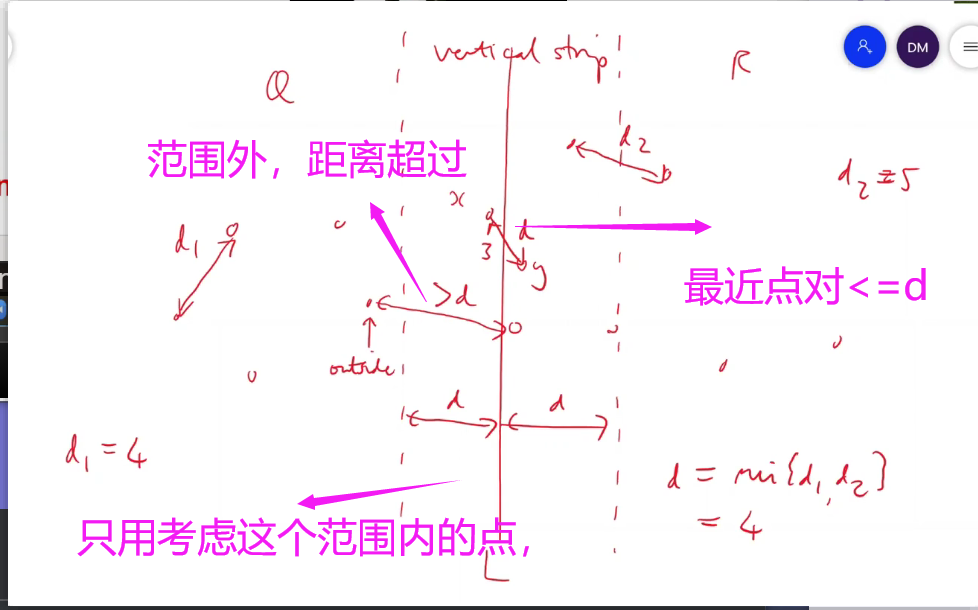 vertical strip
Q
R
DM
范围外，距离超过
d2
d2 = 5
x
d1
d
3
y
>d
最近点对<=d
outside
d
d
d1 = 4
d = min{d1, d2}
= 4
只用考虑这个范围内的点,
L